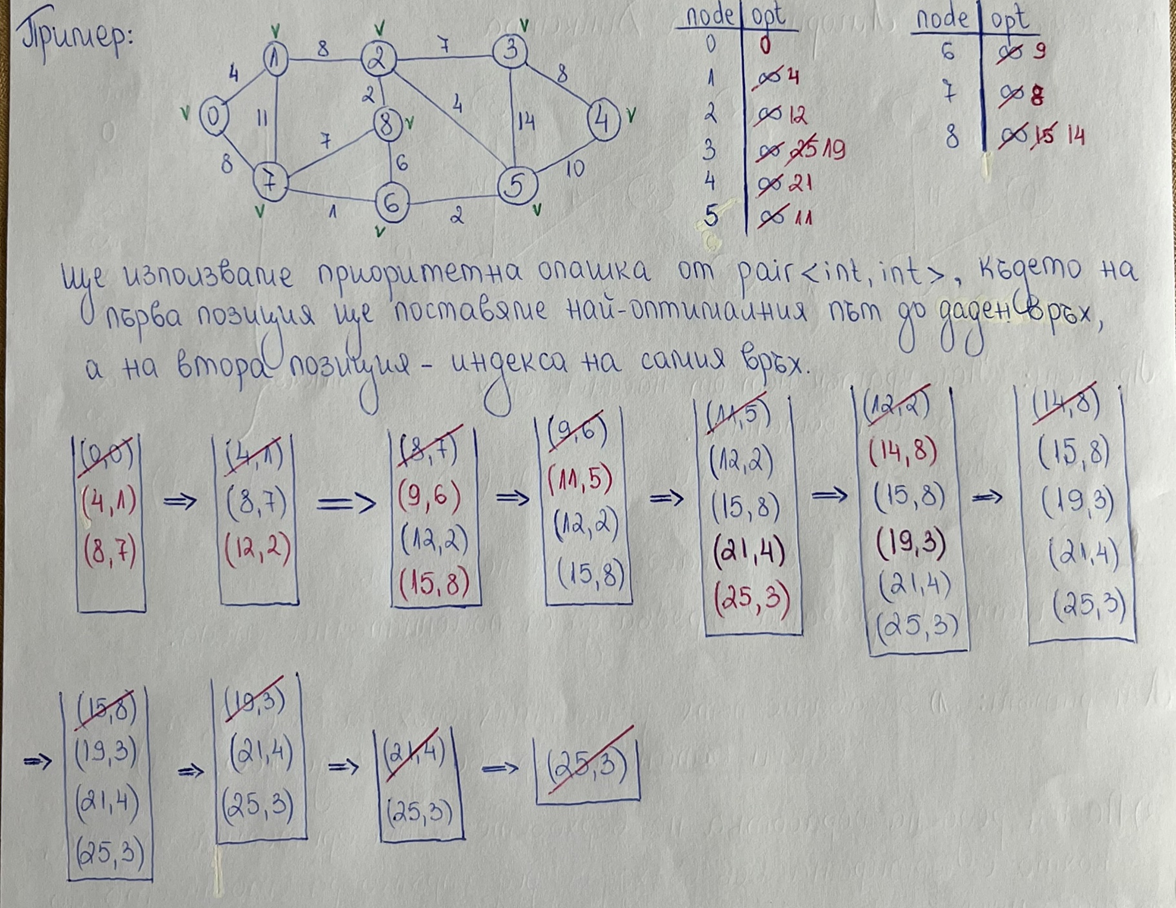 Пример:
1 8 2 7 3
4 2 4 8
0 11 8 14 4
8 7 6 10
7 1 6 2 5
node opt
0 0
1 ∞ 4
2 ∞ 12
3 ∞ 25 19
4 ∞ 21
5 ∞ 11
node opt
6 ∞ 9
7 ∞ 8
8 ∞ 15 14
Ще използваме приоритетна опашка от pair<int,int>, където на
първа позиция ще поставяме най-оптималния път до даден връх,
а на втора позиция - индекса на самия връх.
(0,0)
(4,1)
(8,7)
⇒
(4,1)
(8,7)
(12,2)
⇒
(8,7)
(9,6)
(12,2)
(15,8)
⇒
(9,6)
(11,5)
(12,2)
(15,8)
⇒
(11,5)
(12,2)
(15,8)
(21,4)
(25,3)
⇒
(12,2)
(14,8)
(15,8)
(19,3)
(21,4)
(25,3)
⇒
(14,8)
(15,8)
(19,3)
(21,4)
(25,3)
⇒
(15,8)
(19,3)
(21,4)
(25,3)
⇒
(19,3)
(21,4)
(25,3)
⇒
(21,4)
(25,3)
⇒
(25,3)